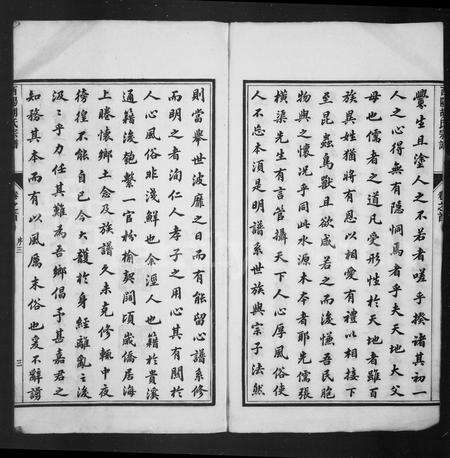 釁生且塗人之不若者嗟乎揆諸其初一
人之心得無有隱恫焉者乎夫天地大父
母也儒者之道凡受形性於天地者雖百
族異姓猶將有恩以相愛有禮以相接下
至昆蟲鳥獸且欲咸若之而後愜吾民胞
物與之懷況乎同此水源木本者耶先儒張
橫渠先生有言管攝天下人心厚風俗使
人不忘本須是明譜系世族與宗子法然
則當舉世波靡之日而有能留心譜系修
而明之者洵仁人孝子之用心其有關於
人心風俗非淺鮮也余涇人也籍於貴溪
通籍後匏繫一官枌榆契闊頃歲僑居海
上睠懷鄉土念及族譜久未克修輒中夜
徬徨不能自已今大護於身經離亂之後
汲汲乎力任其難為吾鄉倡予甚嘉君之
知務其本而有以風厲末俗也爰不辭譾
序三
三